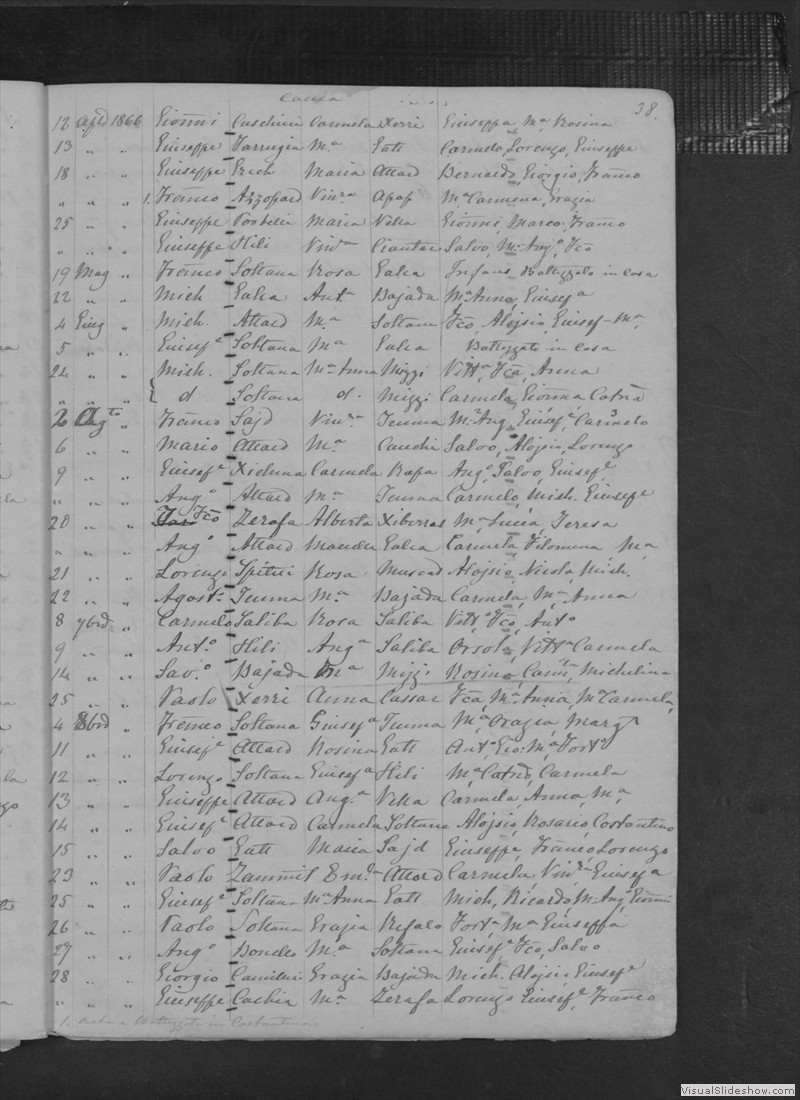 38.
12 Aple 1866 Gionni Caselini Carmela Xerri Giuseppa Ma Rosina
13 " " Giuseppe Farrugia Ma Gatt Carmelo, Lorenzo, Giuseppe
18 " " Giuseppe Grech Maria Attard Bernardo, Giorgio, Franco
" " " 1. Franco Azzopard Vinza Apap Ma Carmena, Grazia
25 " " Giuseppe Portelli Maria Vella Gionni Marco, Franco
" " " Giuseppe Hili Vinza Ciantar Salvo, Ma Ango, Fco
19 Mag " Franco Soltana Rosa Galea Infans Battezzato in casa
22 " " Mich Galea Anta Bajada Ma Anna, Giusefa
4 Giug " Mich. Attard Ma Soltana Fco, Alojsio, Giusef-Ma,
5 " " Giusefe Soltana Ma Galea Battezzato in Casa
24 " " Mich. Soltana Ma Anna Mizzi Vitta, Fca, Anna
" " " d Soltana d. Mizzi Carmela, Gionna Catna
2 Agto " Franco Sajd Vinza Tcuma Ma Ang, Giusefe, Carmelo
6 " " Mario Attard Ma Cauchi Salvo, Alojsio, Lorenzo
9 " " Giusefe Xicluna Carmela Rapa Ango, Salvo, Giusefe
" " " Ango Attard Ma Tcuma Carmelo, Mich. Giusepe
20 " " Fco Zerafa Alberta Xiberras Ma, Lucia, Teresa
" " " Ango Attard Galea Carmela, Filomena Ma
21 " " Lorenzo Spiteri Rosa Muscad Alojsio, Nicola, Mich.
22 " " Agosto Tcuma Ma Bajada Carmela, Ma, Anna
8 7bre " Carmelo Saliba Rosa Saliba Vitto, Fco, Anto
9 " " Anto Hili Anga Saliba Orsola, Vitta Carmela
14 " " Savo Bajada Ma Mizzi Rosina, Carmla, Michelina
25 " " Paolo Xerri Anna Cassar Fca, Ma Annia, Ma Carmela,
4 8bre " Franco Soltana Giusefa Tcuma Ma Grazia, Marga
11 " " Giusefe Attard Rosina Gatt Anta Gio. Ma Forta
12 " " Lorenzo Soltana Giusefa Hili Ma Catna, Carmela
13 " " Giuseppe Attard Anga Vella Carmela, Anna, Ma
14 " " Giusefe Attard Carmela Soltana Alojsio, Rosario, Costantino
15 " " Salvo Gatt Maria Sajd Giuseppe, Franco Lorenzo
23 " " Paolo Zammit Emla Attard Carmela, Vinza Giusefa
25 " " Giusefe Soltana Ma Anna Gatt Mich, Ricardo, Ma Ango, Gionni
26 " " Paolo Soltana Grazia Refalo Forta Ma Giuseppa
27 " " Ango Bondee Ma Soltana Giusefe, Fco, Salvo
28 " " Giorgio Camilleri Grazia Bajada Mich. Alojsio, Giusefe
" " " Giuseppe Cachia Ma Zerafa Lorenzo Giusefe, Franco
1. Battezzata in Costantina
VisualSlideshow.com